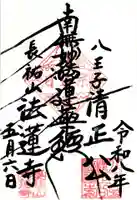 八王子清正公
令和八年
南無妙法蓮華経
長祐山法蓮寺
五月六日